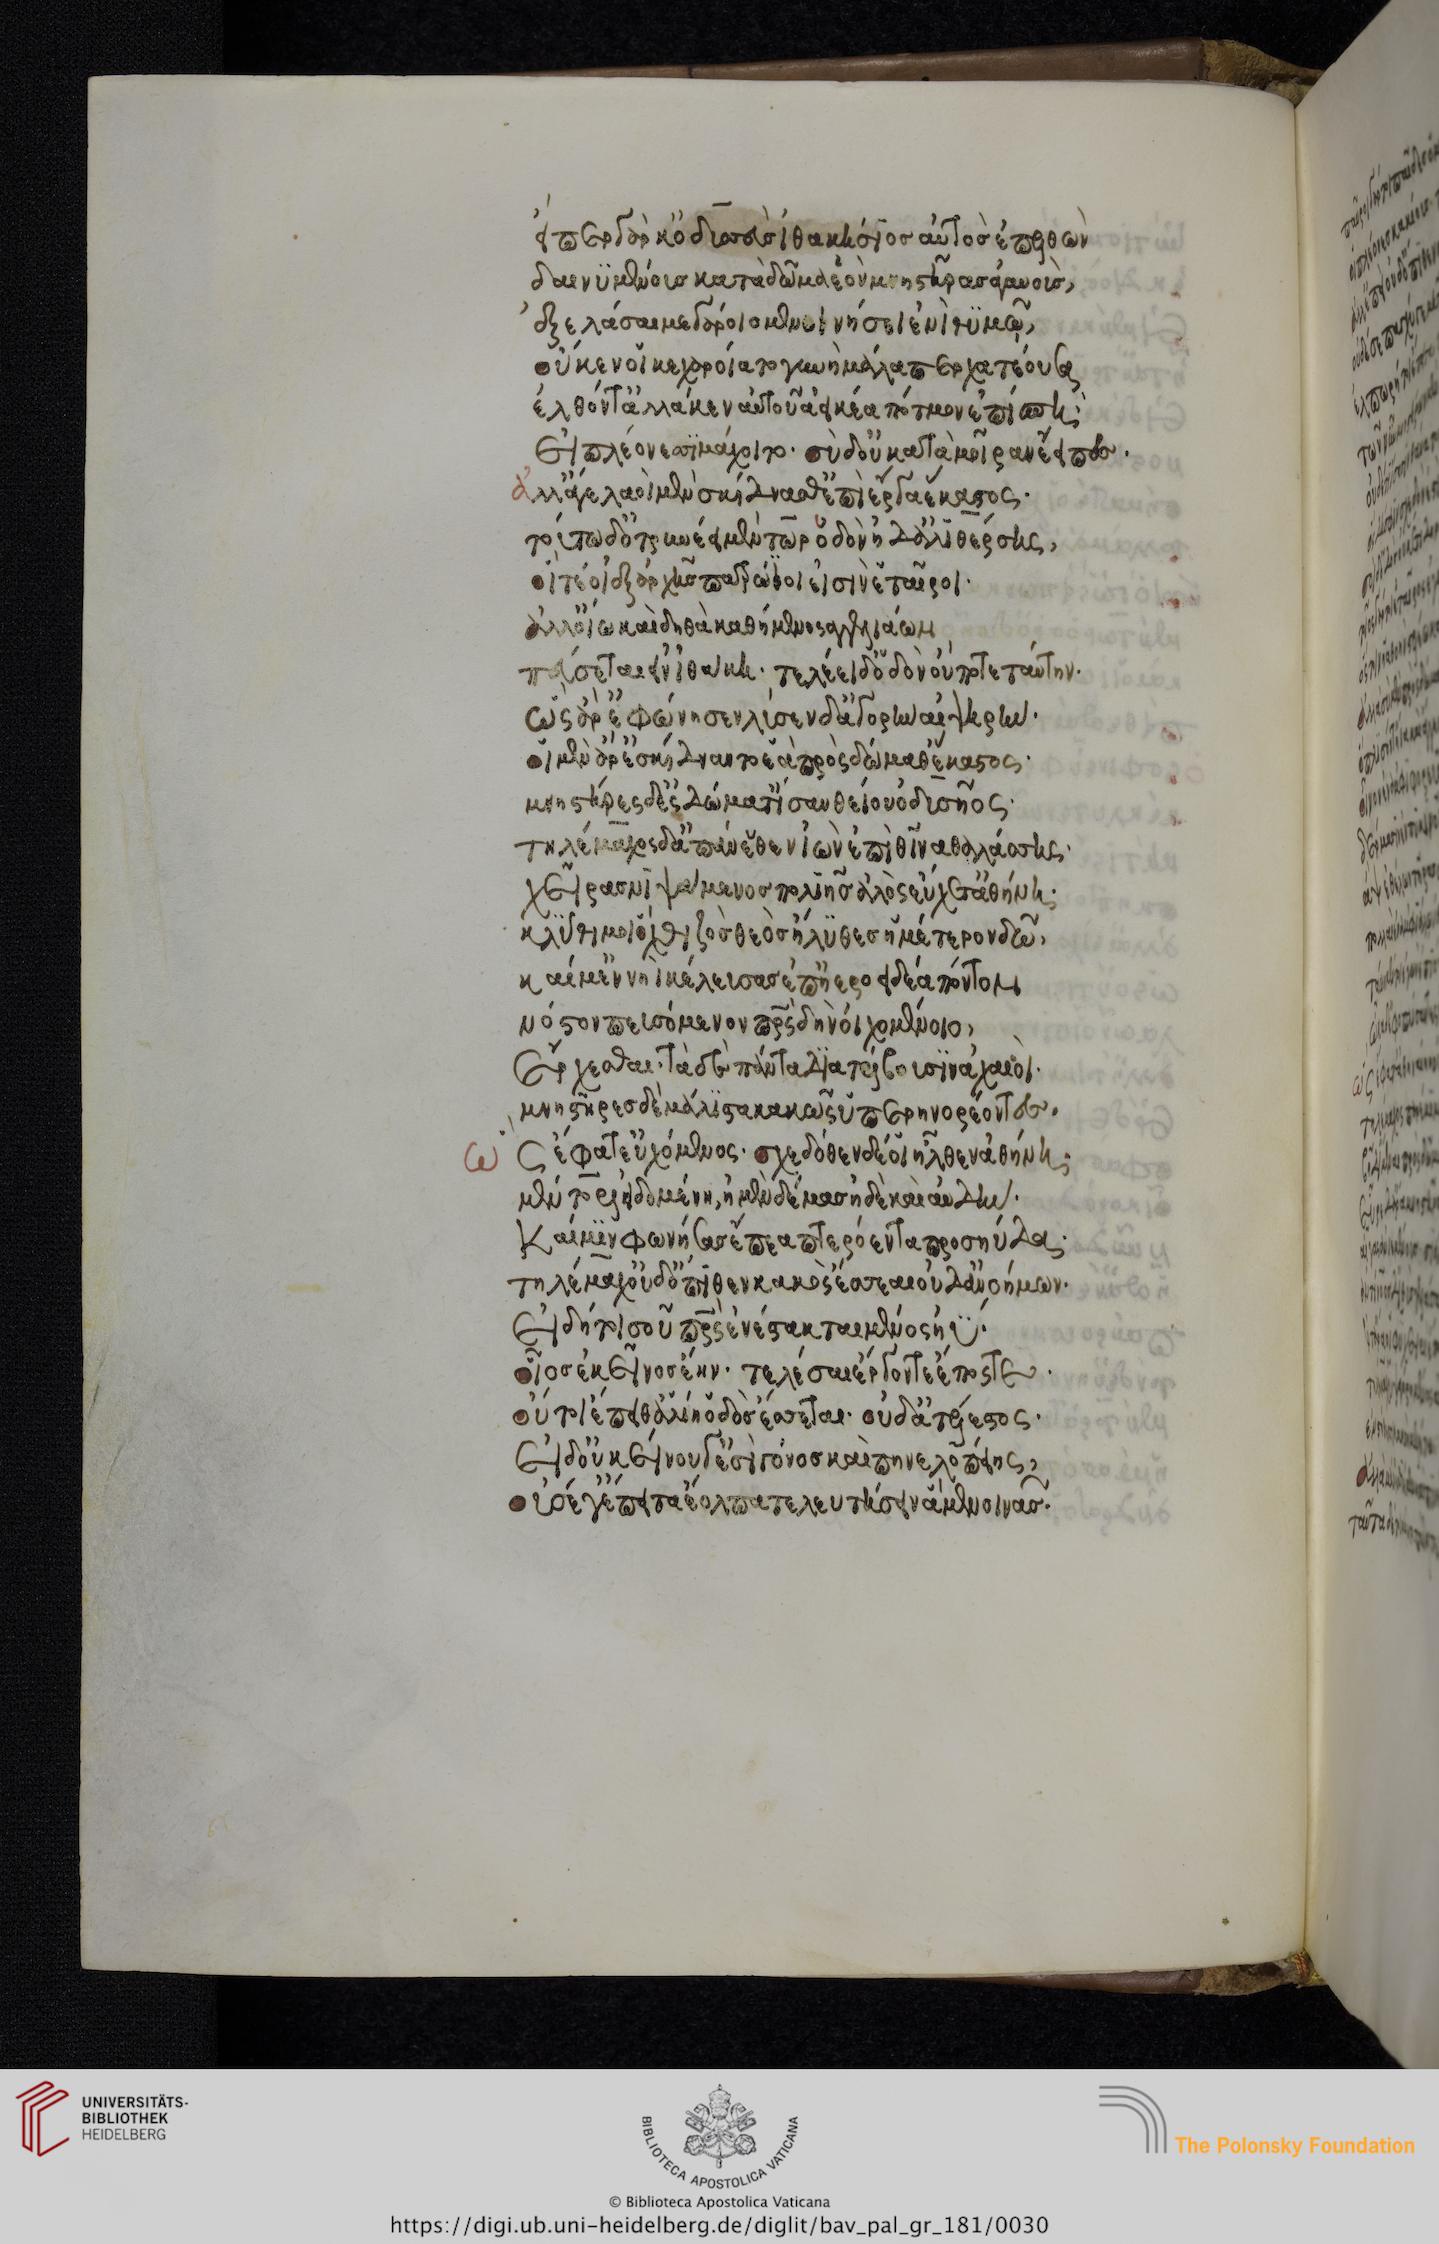 εἴπερ γάρ κ' ὀδυσσεὺς ἰθακήσιος αὐτὸς ἐπελθὼν
δαινυμένους κατὰ δῶμα ἑὸν μνηστῆρας ἀγαυοὺς,
ἐξελάσαι μεγάροιο μενοινήσει ἐνὶ θυμῷ,
οὔ κέν οἱ κεχάροιτο γυνὴ μάλα περ χατέουσα
ἐλθόντ' ἀλλά κεν αὐτοῦ ἀεικέα πότμον ἐπίσποι·
εἰ πλεόνεσσι μάχοιτο· σὺ δ' οὐ κατὰ μοῖραν ἔειπες.
ἀλλ' ἄγε λαοὶ μὲν σκίδνασθ' ἐπὶ ἔργα ἕκαστος·
τούτῳ δ' ὀτρυνέει μέντωρ ὁδὸν ἠδ' ἁλιθέρσης,
οἵ τέ οἱ ἐξ ἀρχῆς πατρώϊοι εἰσὶν ἑταῖροι·
ἀλλ' ὀΐω καὶ δηθὰ καθήμενος ἀγγελιάων
πεύσεται εἰν ἰθάκῃ· τελέει δ' ὁδὸν οὔποτε ταύτην·
ὣς ἄρ' ἐφώνησεν λῦσεν δ' ἀγορὴν αἰψηρήν·
οἱ μὲν ἄρ' ἐσκίδναντο ἑὰ πρὸς δώμαθ' ἕκαστος·
μνηστῆρες δ' ἐς δώματ' ἴσαν θείου ὀδυσῆος·
τηλέμαχος δ' ἀπάνευθεν ἰὼν ἐπὶ θῖνα θαλάσσης·
χεῖρας νιψάμενος πολιῆς ἁλὸς εὔχετ' ἀθήνῃ·
κλῦθί μοι ὃ χθιζὸς θεὸς ἤλυθες ἡμέτερον δῶ,
καί μ' ἐν νηῒ κέλευσας ἐπ' ἠεροειδέα πόντον
νόστον πευσόμενον πατρὸς δὴν οἰχομένοιο,
ἔρχεσθαι· τὰ δὲ πάντα διατρίβουσιν ἀχαιοὶ·
μνηστῆρες δὲ μάλιστα κακῶς ὑπερηνορέοντες.
ὣς ἔφατ' εὐχόμενος· σχεδόθεν δέ οἱ ἦλθεν ἀθήνη·
μέντορι εἰδομένη, ἠμὲν δέμας ἠδὲ καὶ αὐδήν·
καί μιν φωνήσασ' ἔπεα πτερόεντα προσηύδα·
τηλέμαχ' οὐδ' ὄπιθεν κακὸς ἔσσεαι οὐδ' ἀνοήμων·
εἰ δή τοι σοῦ πατρὸς ἐνέστακται μένος ἠΰ·
οἷος ἐκεῖνος ἔην· τελέσαι ἔργόν τε ἔπος τε·
οὔ τοι ἔπειθ' ἁλίη ὁδὸς ἔσσεται· οὐδ' ἀτέλεστος·
εἰ δ' οὐ κείνου γ' ἐσσὶ γόνος καὶ πηνελοπείης,
οὐ σέγ' ἔπειτα ἔολπα τελευτήσειν ἃ μενοινᾷς·
UNIVERSITÄTS-
BIBLIOTHEK
HEIDELBERG
BIBLIOTECA APOSTOLICA VATICANA
The Polonsky Foundation
© Biblioteca Apostolica Vaticana
https://digi.ub.uni-heidelberg.de/diglit/bav_pal_gr_181/0030